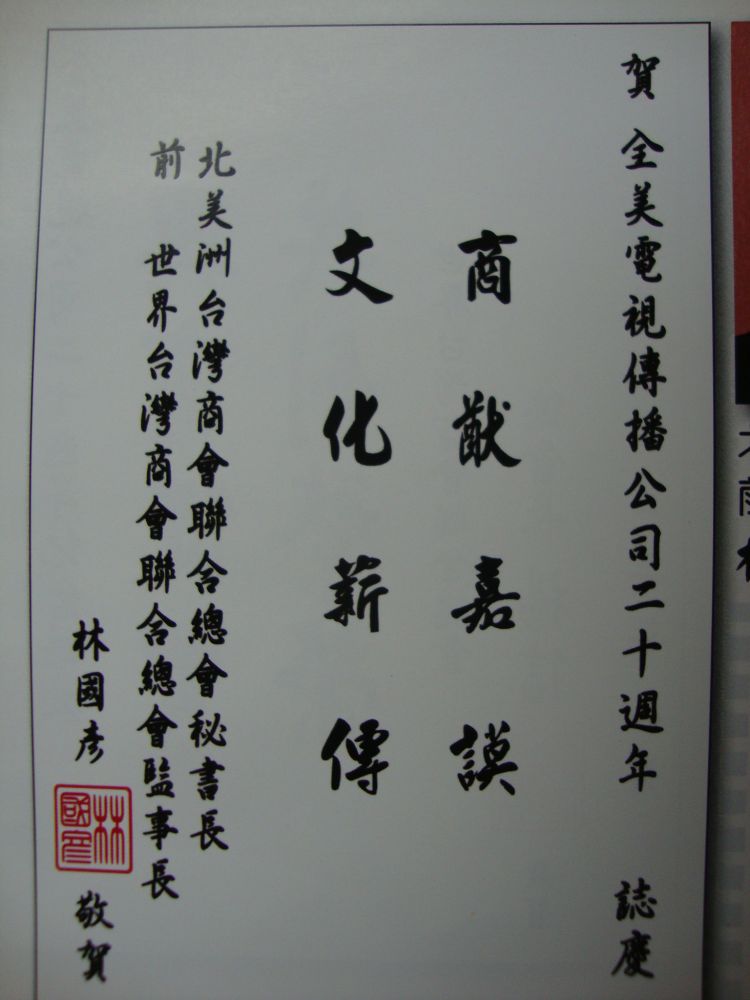 賀 全美電視傳播公司二十週年 誌慶
商猷嘉謨
文化薪傳
北美洲台灣商會聯合總會秘書長
前 世界台灣商會聯合總會監事長
林國彥 敬賀
林國彥